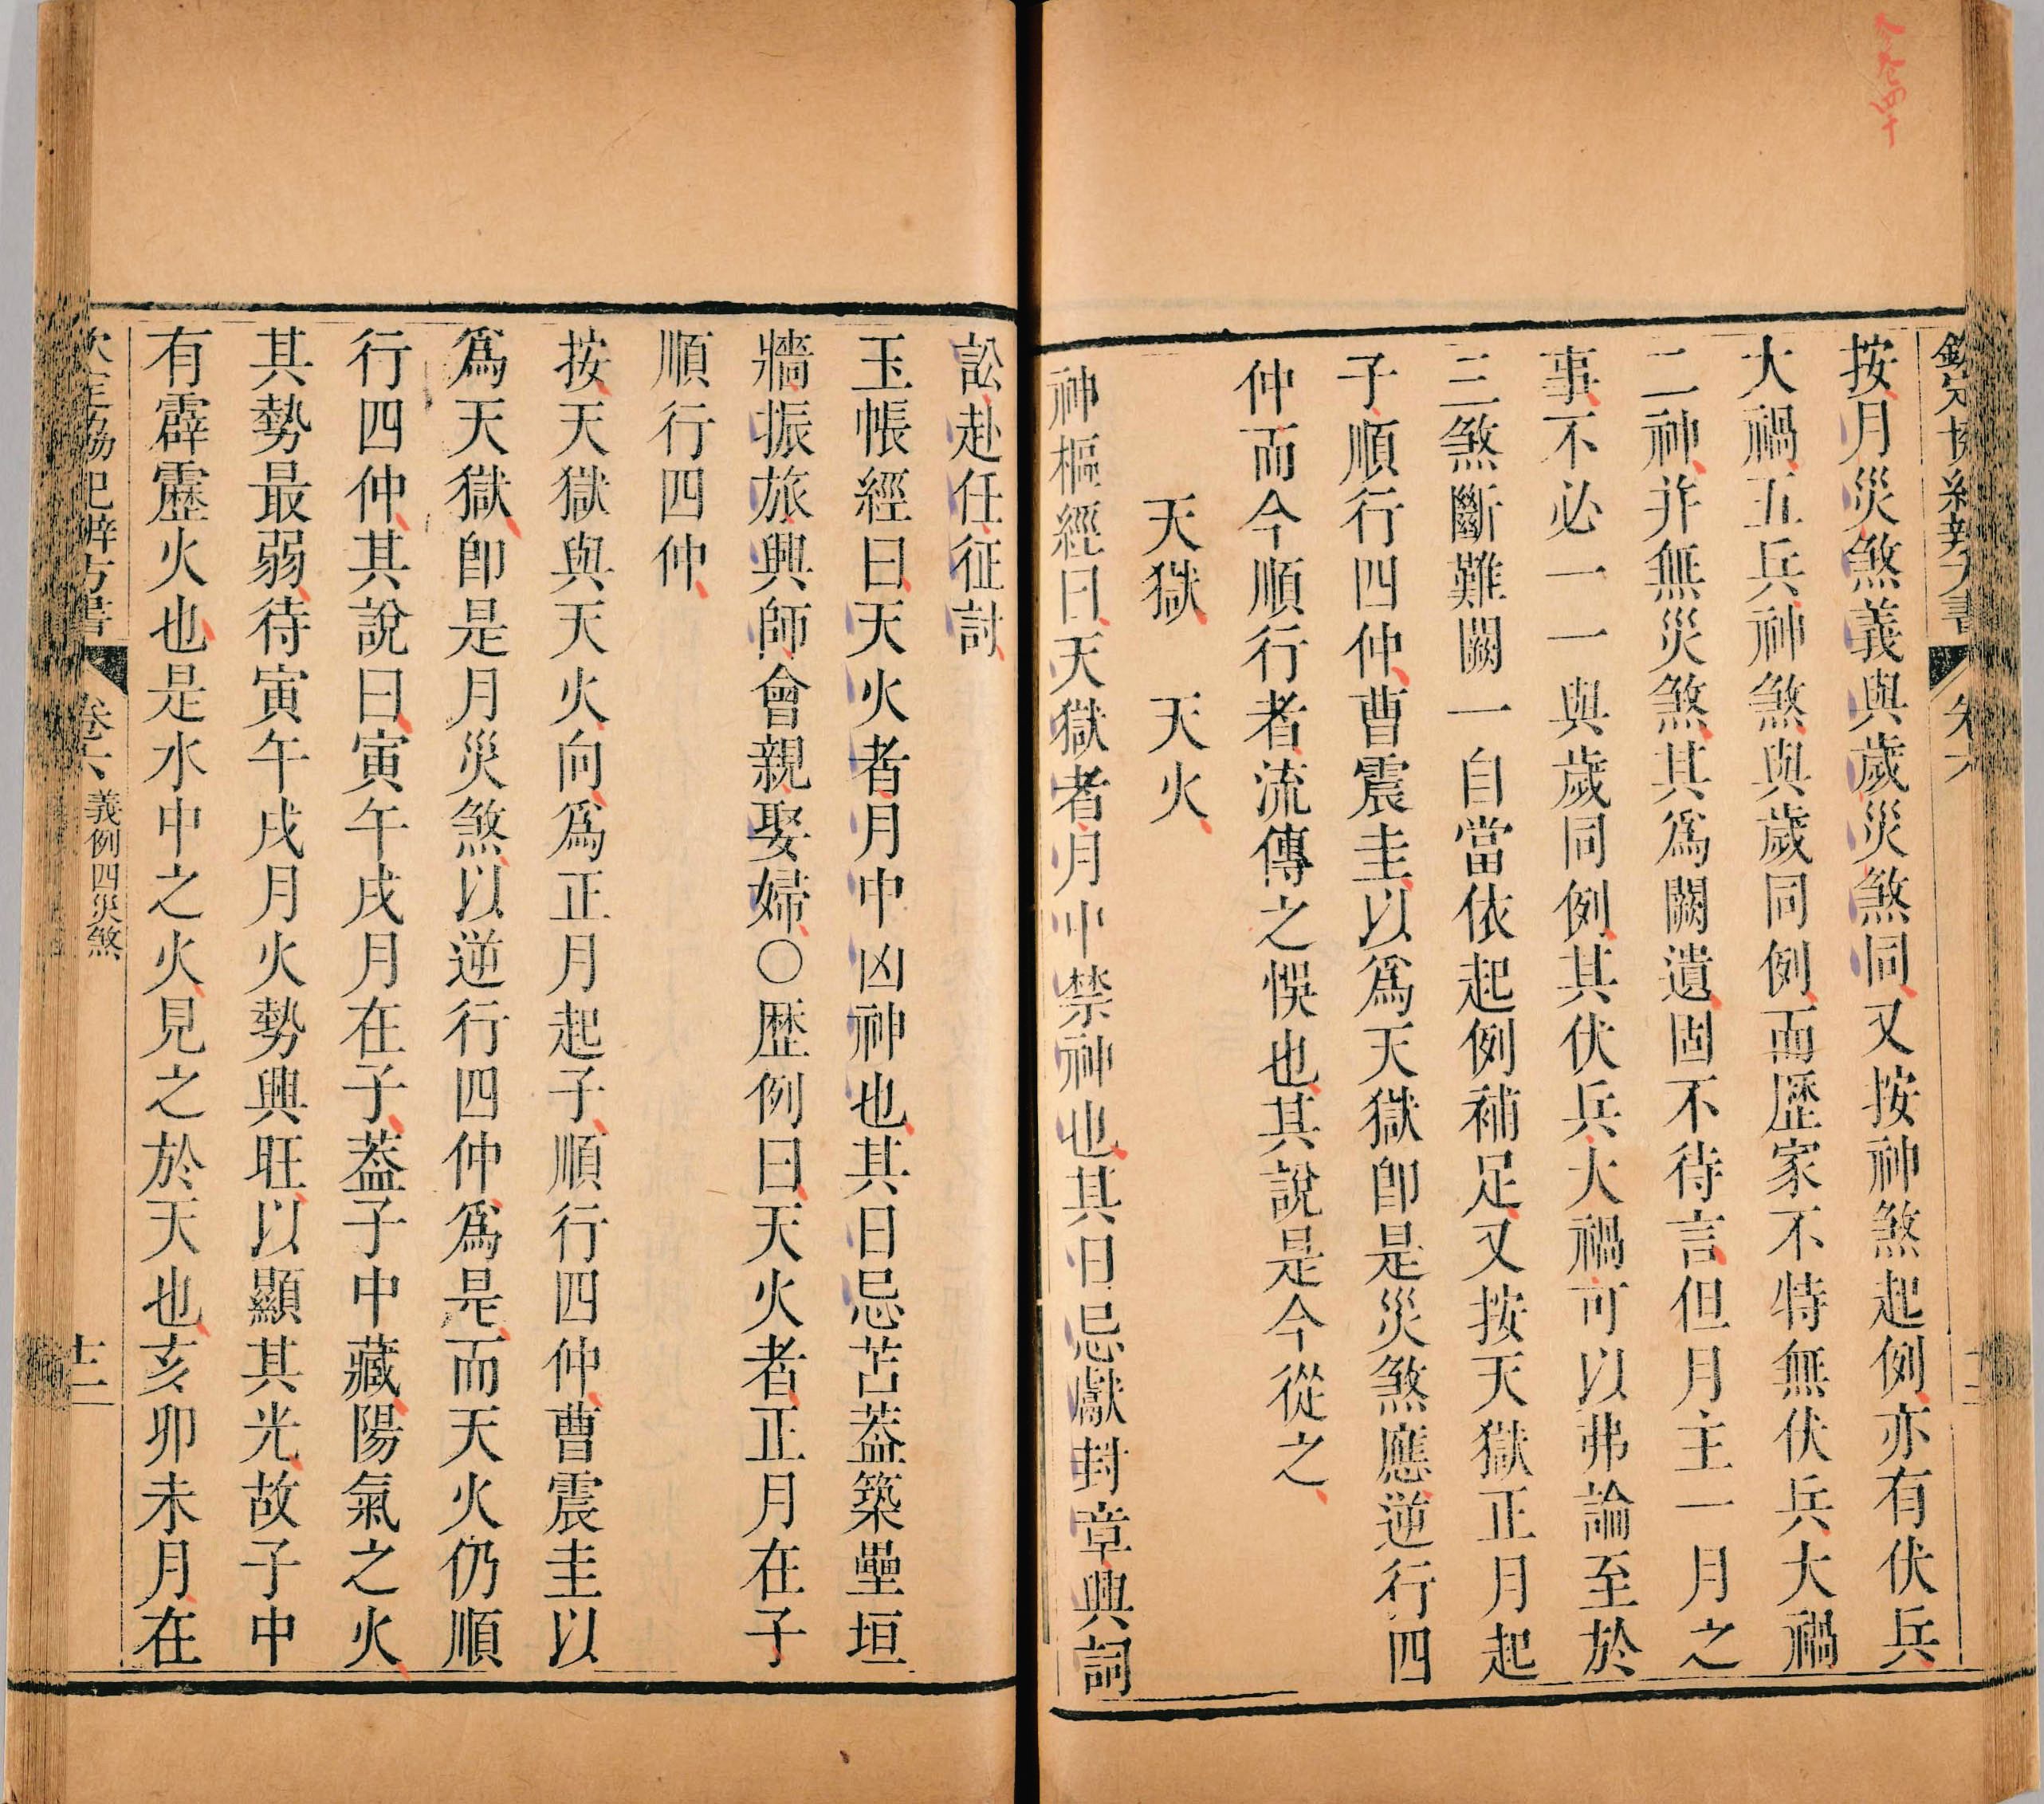 欽定協紀辨方書 卷六
按月災煞義與歲災煞同又按神煞起例亦有伏兵
大禍五兵神煞與歲同例而歷家不特無伏兵大禍
二神并無災煞其爲闕遺固不待言但月主一月之
事不必一一與歲同例其伏兵大禍可以弗論至於
三煞斷難闕一自當依起例補足又按天獄正月起
子順行四仲曹震圭以爲天獄卽是災煞應逆行四
仲而今順行者流傳之悞也其說是今從之
天獄 天火
神樞經曰天獄者月中禁神也其日忌獻封章興詞
訟赴任征討
玉帳經曰天火者月中凶神也其日忌苫葢築壘垣
牆振旅興師會親娶婦○歷例曰天火者正月在子
順行四仲
按天獄與天火向爲正月起子順行四仲曹震圭以
爲天獄卽是月災煞以逆行四仲爲是而天火仍順
行四仲其說曰寅午戌月在子葢子中藏陽氣之火
其勢最弱待寅午戌月火勢興旺以顯其光故子中
有霹靂火也是水中之火見之於天也亥卯未月在
欽定協紀辨方書 卷六 義例四災煞 十二